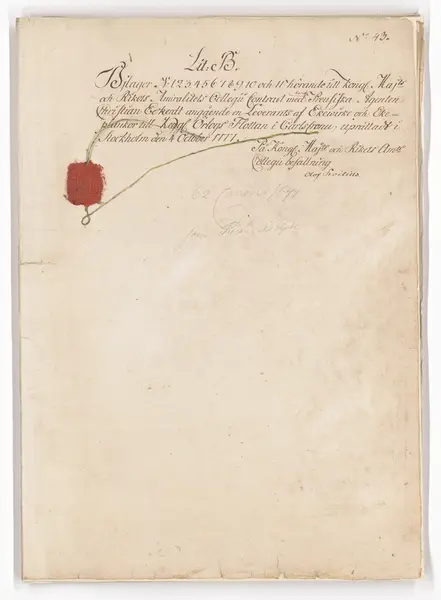 No 43.
Lit: B.
Bjlagor No 1 2 3 4 5 6 7 8 9 10 och 11 hörande till Kongl. Maj:ts
och Rikets Amiralitets Collegii Contract med Preussiska Agenten
Christian Eckardt angående en Leverants af Ekewirke och Eke-
plankor till Kongl. Orlogs Flottan i Carlscrona, uprättadt i
Stockholm den 4 October 1777.
På Kongl. Maj:ts och Rikets Am:ts
Collegii befallning